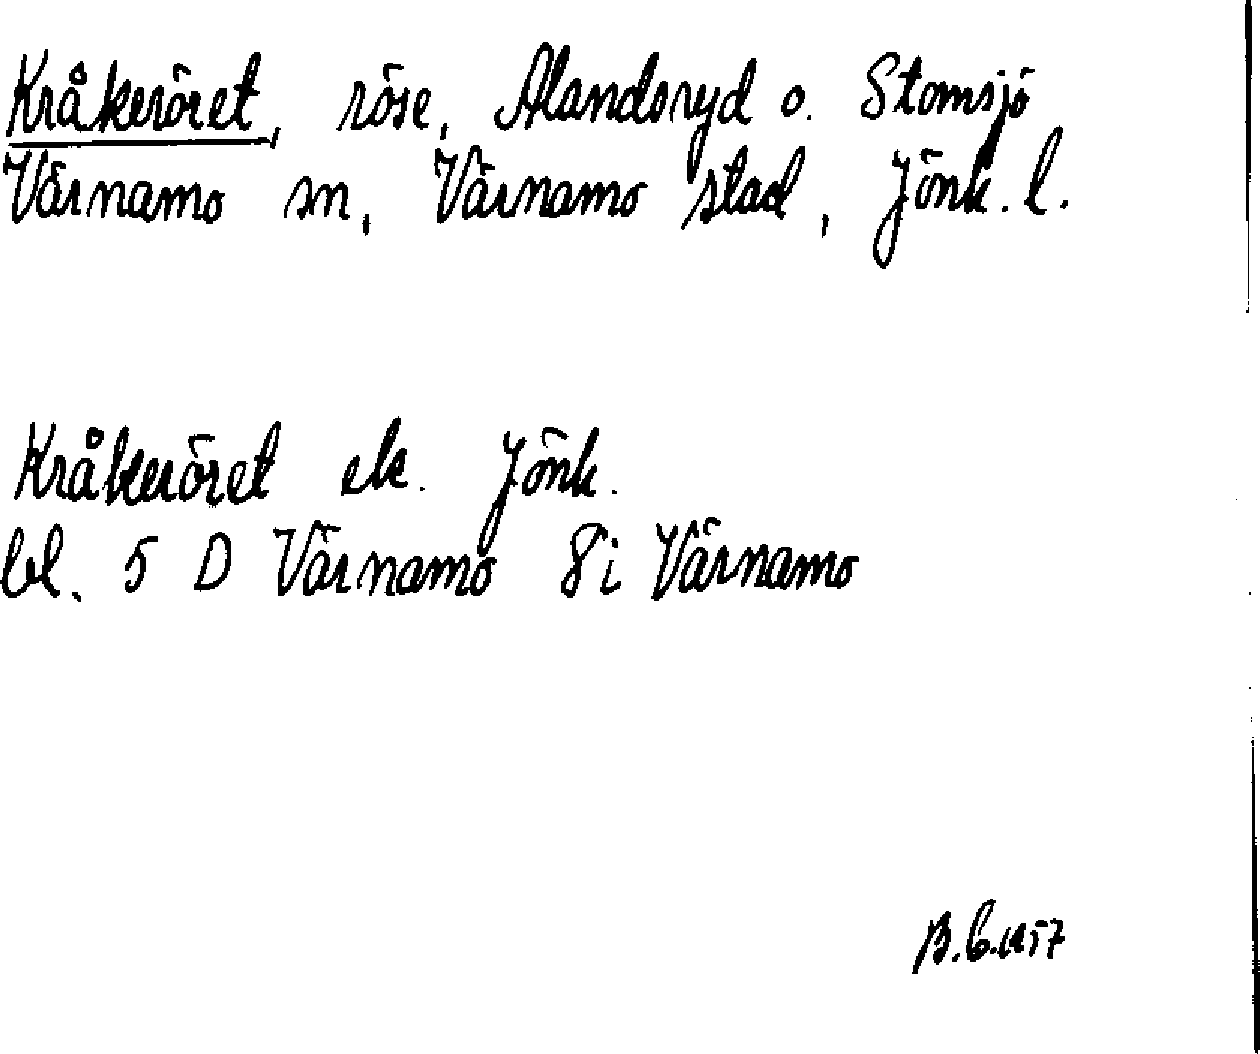 Kråkeröret, röse, Alandsryd o. Stomsjö
Värnamo sn, Värnamo stad, Jönk. l.
Kråkeröret ek. Jönk.
bl. 5 D Värnamo 8i Värnamo
B.C. 1957